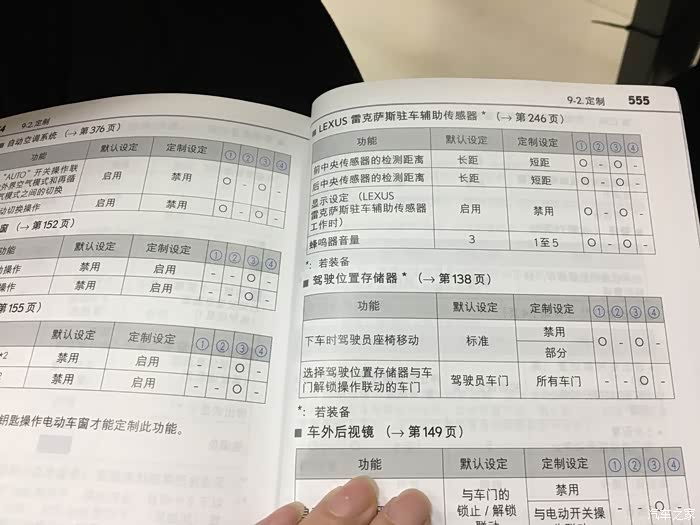 4 9-2.定制
■ 自动空调系统（→ 第376页）
功能 默认设定 定制设定 ① ② ③ ④
“AUTO”开关操作联
外界空气模式和再循
气模式之间的切换 启用 禁用 O - O -
动切换操作 启用 禁用 O - O -
窗（→ 第152页）
功能 默认设定 定制设定 ① ② ③ ④
操作 禁用 启用 - - O -
操作 禁用 启用 - - O -
第155页）
默认设定 定制设定 ① ② ③ ④
*2 禁用 启用 - - O -
2 禁用 启用 - - O -
钥匙操作电动车窗才能定制此功能。
9-2.定制 555
■ LEXUS 雷克萨斯驻车辅助传感器 *（→ 第246页）
功能 默认设定 定制设定 ① ② ③ ④
前中央传感器的检测距离 长距 短距 O - O -
后中央传感器的检测距离 长距 短距 O - O -
显示设定（LEXUS
雷克萨斯驻车辅助传感器
工作时） 启用 禁用 O - O -
蜂鸣器音量 3 1至5 O - O -
*：若装备
■ 驾驶位置存储器 *（→ 第138页）
功能 默认设定 定制设定 ① ② ③ ④
下车时驾驶员座椅移动 标准 禁用 O - O -
部分
选择驾驶位置存储器与车
门解锁操作联动的车门 驾驶员车门 所有车门 - - O -
*：若装备
■ 车外后视镜（→ 第149页）
功能 默认设定 定制设定 ① ② ③ ④
与车门的
锁止 / 解锁
联动 禁用
与电动开关操 - - O -
汽车之家